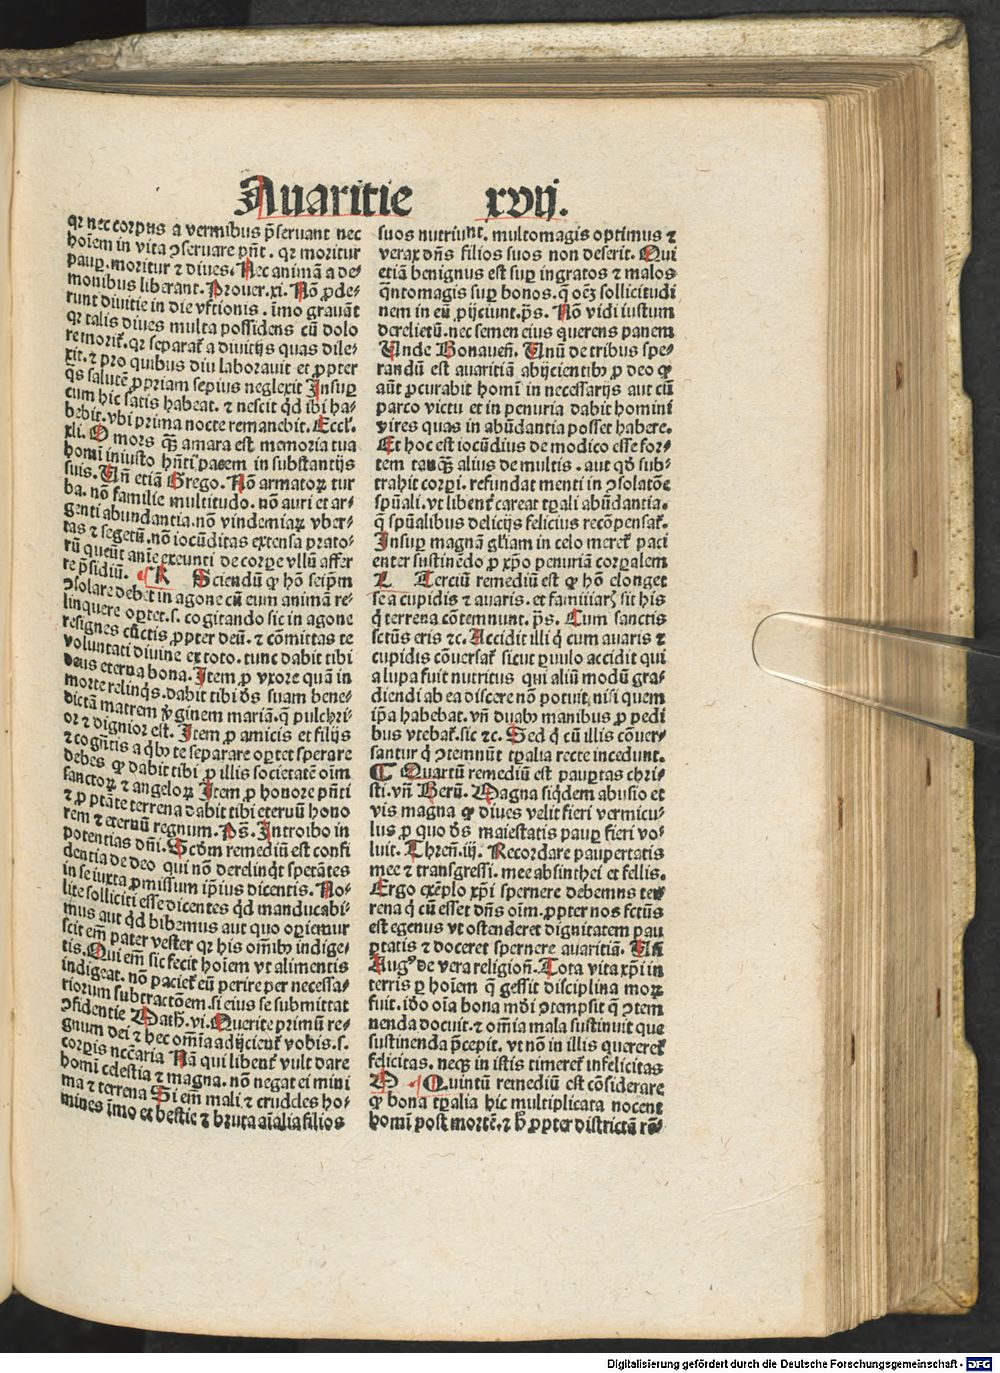 Auaritie xvij.
qꝛ nec corpus a vermibus p̄seruant nec
hoīem in vita ꝯseruare pn̄t. qꝛ moritur
paup̲. moritur ⁊ diues. Nec animā a de⸗
monibus liberant. Prouer.xi. Nō ꝓde⸗
runt diuitie in die vltionis. īmo grauāt
qꝛ talis diues multa possidens cū dolo
re morit᷑. qꝛ separat᷑ a diuitijs quas dile⸗
xit. ⁊ pro quibus diu laborauit et ꝓpter
q̄s salutē ꝓpriam sepius neglexit Insup̲
cum hic satis habeat. ⁊ nescit qd̄ ibi ha⸗
bebit. vbi prima nocte remanebit. Eccl᷑.
xli. O mors qꝫ̄ amara est memoria tua
homī iniusto hn̄ti pacem in substantijs
suis. Un̄ etiā Grego. Nō armatoꝝ tur
ba. nō familie multitudo. nō auri et ar⸗
genti abundantia. nō vindemiaꝝ vber⸗
tas ⁊ segetū. nō iocūditas extensa prato⸗
rū queūt anīe exeunti de corpe vllū affer
re p̄sidiū. K Sciendū ꝙ hō seip̄m
ꝯsolare debet in agone cū eum animā re⸗
linquere optet. s. cogitando sic in agone
resignes cūctis ꝓpter deū. ⁊ cōmittas te
voluntati diuine ex toto. tunc dabit tibi
deus eterna bona. Item ꝓ vxore quā in
morte relinq̄s. dabit tibi dēs suam bene⸗
dictā matrem v̄ginem mariā. q̄ pulchri⸗
or ⁊ dignior est. Item ꝓ amicis et filijs
⁊ cogn̄tis a q̄bꝫ te separare optet sperare
debes ꝙ dabit tibi ꝓ illis societatē oīm
sanctoꝝ ⁊ angeloꝝ Item ꝓ honore pn̄ti
⁊ ꝓ ptāte terrena dabit tibi eternū hono
rem ⁊ eternū regnum. Ps̄. Introibo in
potentias dn̄i. Scd̄m remediū est confi
dentia de deo qui nō derelinq̄t sperātes
in se iuxta ꝓmissum ip̄ius dicentis. No⸗
lite solliciti esse dicentes qd̄ manducabi⸗
mus aut qd̄ bibemus aut quo opiemur
scit em̄ pater vester qꝛ his om̄ibꝫ indige⸗
tis. Qui em̄ sic fecit hoīem vt alimentis
indigeat. nō paciet᷑ eū perire per necessa⸗
riorum subtractōem. si eius se submittat
ꝯfidentie Math. vi. Querite primū re⸗
gnum dei ⁊ hec om̄ia adijcient᷑ vobis. s.
corpis nc̄caria Nā qui libent᷑ vult dare
homī celestia ⁊ magna. nō negat ei mini
ma ⁊ terrena Si em̄ mali ⁊ crudeles ho⸗
mines īmo et bestie ⁊ bruta aīalia filios
suos nutriunt. multomagis optimus ⁊
verax dn̄s filios suos non deserit. Qui
etiā benignus est sup̲ ingratos ⁊ malos
q̄ntomagis sup̲ bonos. q̄ oēꝫ sollicitudi
nem in eū ꝓijciunt. ps̄. Nō vidi iustum
derelictū. nec semen eius querens panem
Unde Bonauen̄. Unū de tribus spe⸗
randū est auaritiā abijcientibꝫ ꝓ deo ꝙ
aūt ꝓcurabit homī in necessarijs aut cū
parco victu et in penuria dabit homini
vires quas in abūdantia posset habere.
Et hoc est iocūdius de modico esse for⸗
tem tanqꝫ̄ alius de multis. aut qd̄ sub⸗
trahit corpi. refundat menti in ꝯsolatōe
spn̄ali. vt libent᷑ careat tp̄ali abūdantia.
q̄ spūalibus delicijs felicius recōpensat᷑.
Insup̲ magnā gl̄iam in celo meret᷑ paci
enter sustinēdo ꝓ xp̄o penuriā corpalem
L Terciū remediū est ꝙ hō elonget
se a cupidis ⁊ auaris. et familiaris sit his
q̄ terrena cōtemnunt. ps̄. Cum sanctis
sctūs eris ⁊c. Accidit illi q̄ cum auaris ⁊
cupidis cōuersat᷑ sicut puulo accidit qui
a lupa fuit nutritus qui aliū modū gra⸗
diendi ab ea discere nō potuit. nisi quem
ip̄a habebat. vn̄ duabꝫ manibus ꝓ pedi
bus vtebat᷑. sic ⁊c. Sed q̄ cū illis cōuer⸗
santur q̄ ꝯtemnūt tp̄alia recte incedunt.
¶ Quartū remediū est paup̲tas chri⸗
sti. vn̄ Bern̄. Magna siqd̄em abusio et
vis magna ꝙ diues velit fieri vermicu⸗
lus ꝓ quo dēs maiestatis paup̲ fieri vo⸗
luit. Thren̄. iij. Recordare paupertatis
mee ⁊ transgressi. mee absinthei et fellis.
Ergo exēplo xp̄i spernere debemus ter
rena q̄ cū esset dn̄s oīm. ꝓpter nos fctūs
est egenus vt ostenderet dignitatem pau
p̲tatis ⁊ doceret spernere auaritiā. Un̄
Augꝰ de vera religion̄. Tota vita xp̄i in
terris p̲ hoīem q̄ gessit disciplina moꝝ
fuit. iō oīa bona mūdi ꝯtempsit q̄ ꝯtem
nenda docuit. ⁊ om̄ia mala sustinuit que
sustinenda p̄cepit. vt nō in illis quereret᷑
felicitas. neqꝫ in istis timeret᷑ infelicitas
M Quintū remediū est cōsiderare
ꝙ bona tp̄alia hic multiplicata nocent
homī post mortē. ⁊ h̄ ꝓpter districtā rō⸗
Digitalisierung gefördert durch die Deutsche Forschungsgemeinschaft - DFG